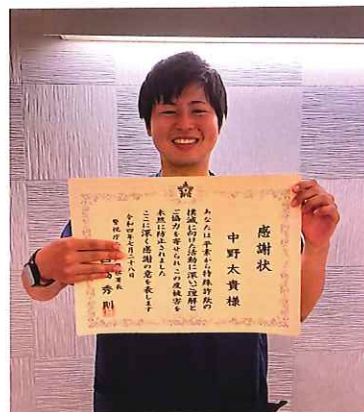 感謝状
中野太貴様
あなたは平素から特殊詐欺の
撲滅に向けた活動に深いご理解と
ご協力を寄せられこの度被害を
未然に防止されました
ここに深く感謝の意を表します
令和四年七月二十八日
警視庁
署長
秀則